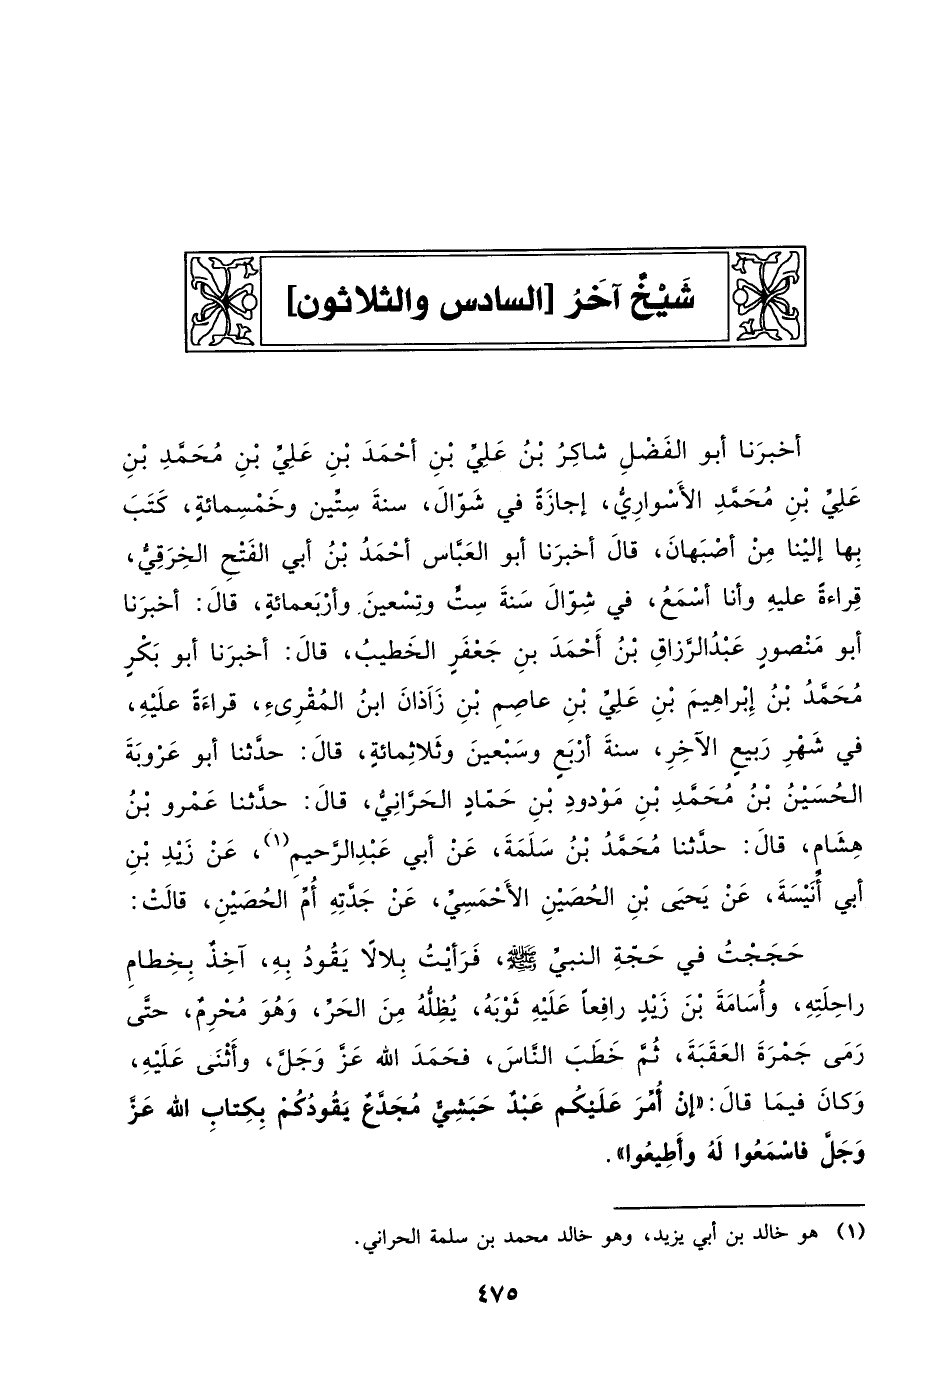 شَيْخٌ آخَرُ [السادس والثلاثون]
أخبرَنا أبو الفَضْلِ شاكِرُ بْنُ عَلِيِّ بْنِ أحْمَدَ بْنِ عَلِيِّ بْنِ مُحَمَّدِ بْنِ
عَلِيِّ بْنِ مُحَمَّدِ الأَسْوارِيُّ، إجازَةً في شَوّالَ، سنةَ سِتِّين وخَمْسِمائةٍ، كَتَبَ
بِها إليْنا مِنْ أصْبَهانَ، قالَ أخبرَنا أبو العَبَّاس أحْمَدُ بْنُ أبي الفَتْحِ الخِرَقِيُّ،
قِراءةً عليهِ وأنا أسْمَعُ، في شوّالَ سَنةَ سِتٍّ وتِسْعينَ وأرْبَعمائةٍ، قالَ: أخبرَنا
أبو مَنْصورٍ عَبْدُالرَّزاقِ بْنُ أَحْمَدَ بنِ جَعْفَرٍ الخَطيبُ، قالَ: أخبرَنا أبو بَكْرٍ
مُحَمَّدُ بْنُ إبْراهِيمَ بْنِ عَلِيِّ بْنِ عاصِمِ بْنِ زَاذانَ ابنُ المُقْرِىءِ، قراءَةً علَيْهِ،
في شَهْرِ رَبيعٍ الآخِرِ، سنةَ أرْبَعٍ وسَبْعينَ وثَلاثِمائةٍ، قالَ: حدَّثنا أبو عَرْوبَةَ
الحُسَيْنُ بْنُ مُحَمَّدِ بْنِ مَوْدودِ بْنِ حَمّادٍ الحَرَّانِيُّ، قالَ: حدَّثنا عَمْرو بْنُ
هِشَامٍ، قالَ: حدَّثنا مُحَمَّدُ بْنُ سَلَمَةَ، عَنْ أبي عَبْدِالرَّحيمِ(١)، عَنْ زَيْدِ بْنِ
أبي أُنَيْسَةَ، عَنْ يَحيَى بْنِ الحُصَيْنِ الأحْمَسِيِّ، عَنْ جَدَّتِهِ أُمِّ الحُصَيْنِ، قالَتْ:
حَجَجْتُ في حَجّةِ النبيِّ ﷺ، فَرَأيْتُ بِلالًا يَقُودُ بِهِ، آخِذٌ بِخِطامِ
راحِلَتِهِ، وأُسَامَةَ بْنَ زَيْدٍ رافِعاً عَلَيْهِ ثَوْبَهُ، يُظِلُّهُ مِنَ الحَرِّ، وَهُوَ مُحْرِمٌ، حتَّى
رَمَى جَمْرَةَ العَقَبَةَ، ثُمَّ خَطَبَ النَّاسَ، فحَمَدَ الله عَزَّ وَجَلَّ، وأَثْنَى عَلَيْهِ،
وَكانَ فيمَا قالَ: «إنْ أُمِّرَ عَلَيْكُم عَبْدٌ حَبَشِيٌّ مُجَدَّعٌ يَقُودُكُمْ بِكِتابِ الله عَزَّ
وَجَلَّ فاسْمَعُوا لَهُ وأَطِيعُوا».
(١) هو خالد بن أبي يزيد، وهو خالد محمد بن سلمة الحراني.
٤٧٥